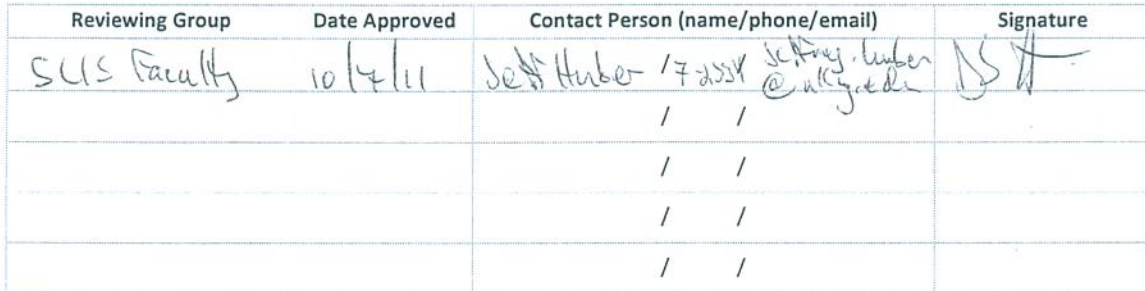 Reviewing Group Date Approved Contact Person (name/phone/email) Signature
SLIS Faculty 10/7/11 Jeff Huber / 7-2334 jeffrey.huber
@uky.edu
/ /
/ /
/ /
/ /